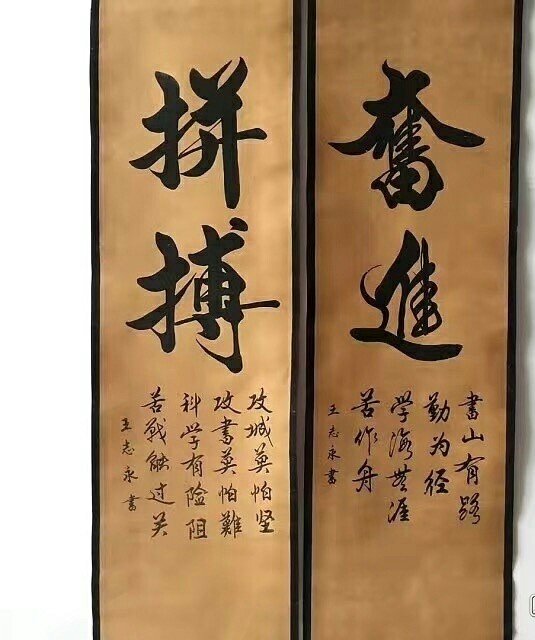 奮進
書山有路
勤为径
学海無涯
苦作舟
王志永書
拼搏
攻城莫怕坚
攻書莫怕難
科学有险阻
苦戰能过关
王志永書